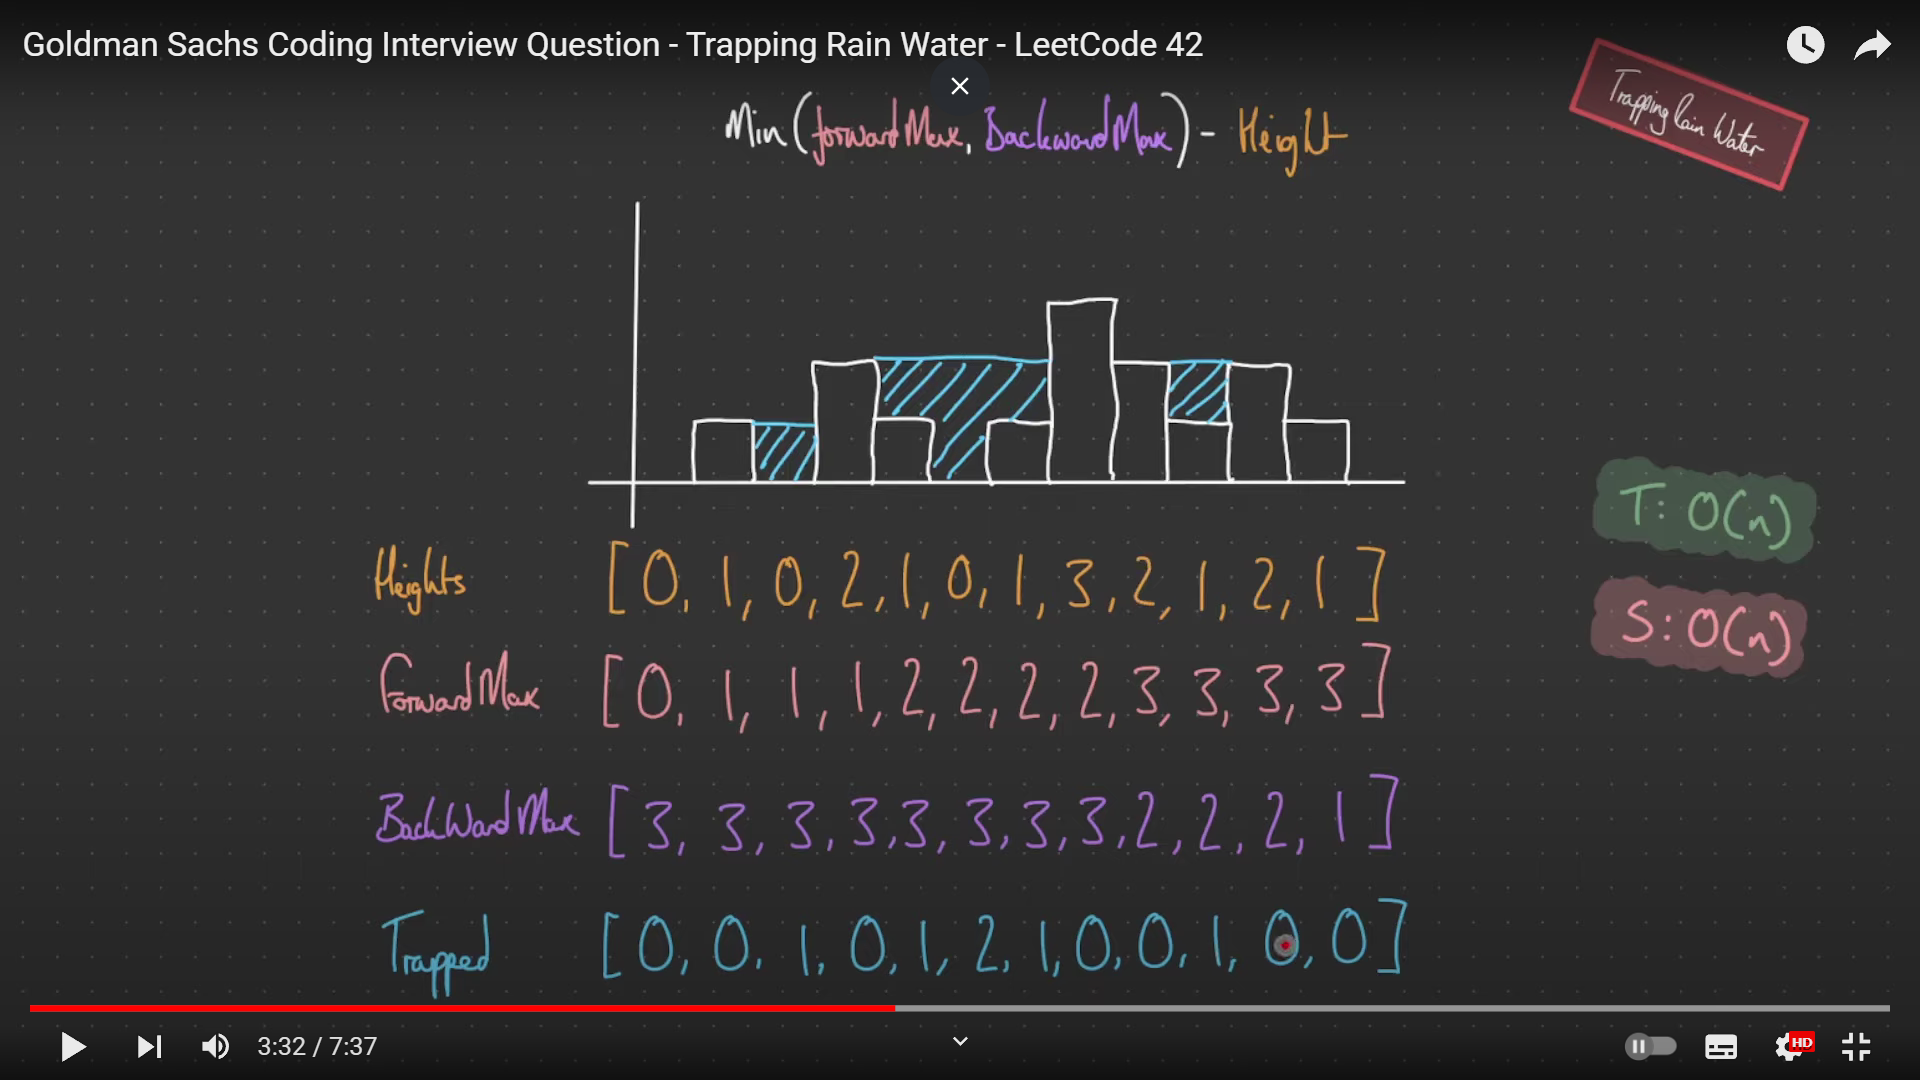 Goldman Sachs Coding Interview Question - Trapping Rain Water - LeetCode 42
Trapping Rain Water
Min(forwardMax, BackwardMax) - Height
T: O(n)
S: O(n)
Heights [0, 1, 0, 2, 1, 0, 1, 3, 2, 1, 2, 1]
ForwardMax [0, 1, 1, 1, 2, 2, 2, 2, 3, 3, 3, 3]
BackWardMax [3, 3, 3, 3, 3, 3, 3, 3, 2, 2, 2, 1]
Trapped [0, 0, 1, 0, 1, 2, 1, 0, 0, 1, 0, 0]
3:32 / 7:37
HD